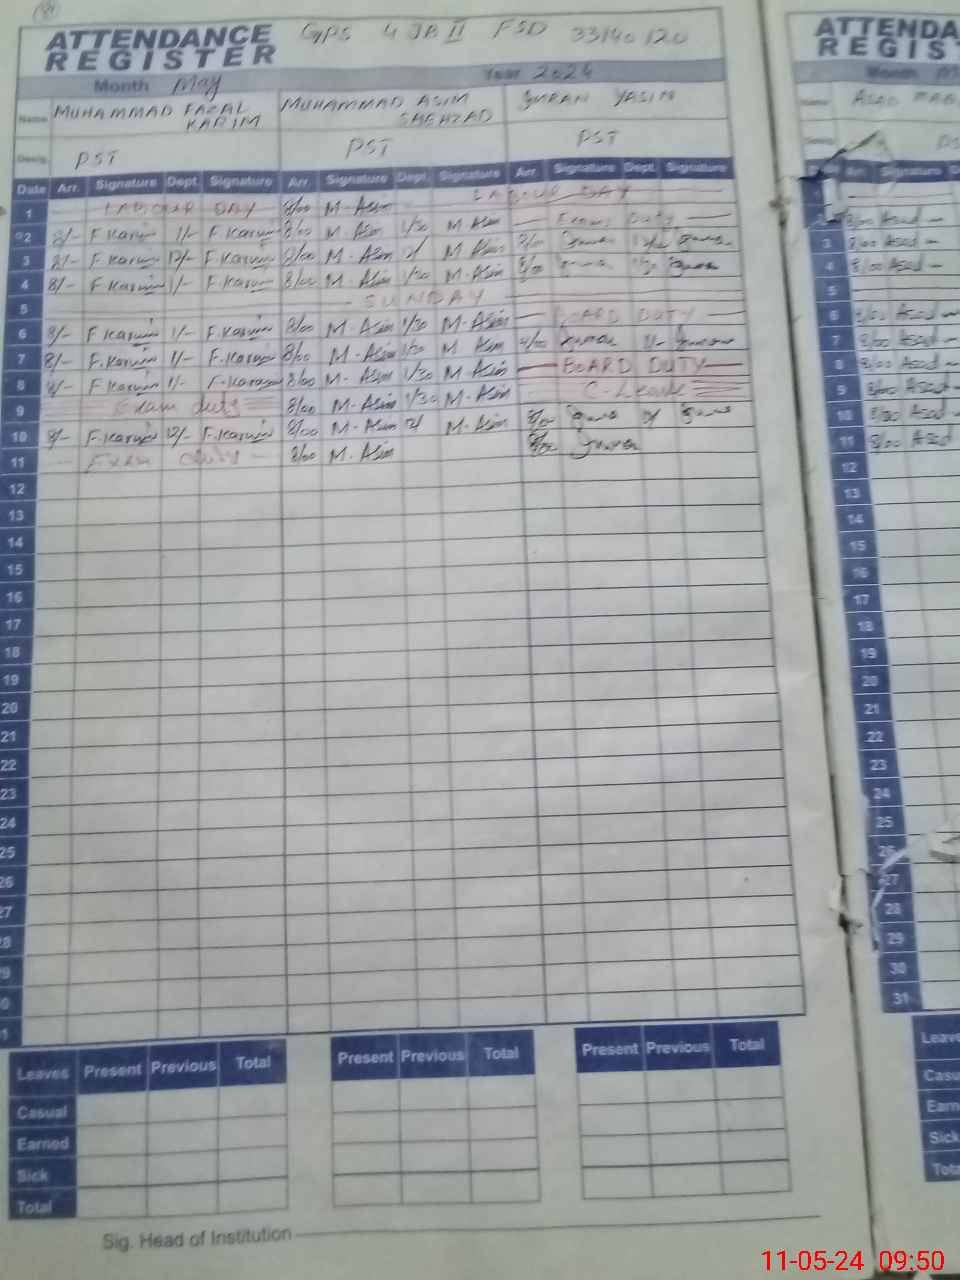 ATTENDANCE REGISTER GPS 4 JB II FSD 33140120
Month May Year 2024
Name MUHAMMAD FAZAL KARIM MUHAMMAD ASIM SHEHZAD YASIN
Desig. PST PST PST
Date Arr. Signature Dept. Signature Arr. Signature Dept. Signature Arr. Signature Dept. Signature
1 LABOUR DAY 8/00 M-Asim LABOUR DAY
2 8/- F.Karim 1/- F.Karim 8/00 M-Asim 1/30 M Asim Exam Duty
3 8/- F.Karim 12/- F.Karim 8/00 M-Asim 12/ M Asim 8/00
4 8/- F.Karim 1/- F.Karim 8/00 M-Asim 1/30 M-Asim 8/00
5 SUNDAY
6 8/- F.Karim 1/- F.Karim 8/00 M-Asim 1/30 M-Asim BOARD DUTY
7 8/- F.Karim 1/- F.Karim 8/00 M-Asim 1/30 M Asim 1/-
8 8/- F.Karim 1/- F.Karim 8/00 M-Asim 1/30 M-Asim BOARD DUTY
9 Exam duty 8/00 M-Asim 1/30 M-Asim C-Leave
10 8/- F.Karim 12/- F.Karim 8/00 M-Asim 12/ M-Asim 8/00
11 Exam duty 8/00 M-Asim 8/00
12
13
14
15
16
17
18
19
20
21
22
23
24
25
26
27
28
29
30
31
Leaves Present Previous Total Present Previous Total Present Previous Total
Casual
Earned
Sick
Total
Sig. Head of Institution
ATTENDA
REGIST
Month
Name ASAD
Arr. Signature
8/00 Asad
3 8/00 Asad
4 8/00 Asad
5
6 Asad
7 8/00 Asad
8 8/00 Asad
9 8/00 Asad
10 8/00 Asad
11 8/00 Asad
12
13
14
15
16
17
18
19
20
21
22
23
24
25
26
27
28
29
30
31
Leave
Casu
Earn
Sick
Tota
11-05-24 09:50